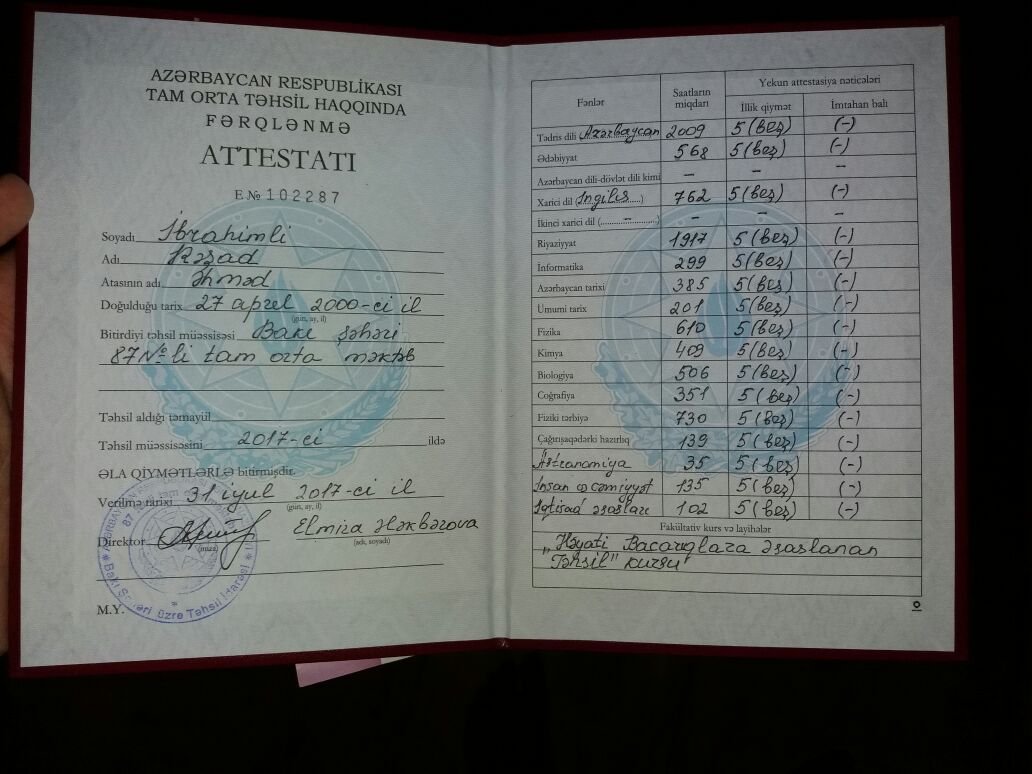 AZƏRBAYCAN RESPUBLİKASI
TAM ORTA TƏHSİL HAQQINDA
FƏRQLƏNMƏ
ATTESTATI
E № 102287
Soyadı İbrahimli
Adı Rəşad
Atasının adı Əhməd
Doğulduğu tarix 27 aprel 2000-ci il
(gün, ay, il)
Bitirdiyi təhsil müəssisəsi Bakı şəhəri
87 №-li tam orta məktəb
Təhsil aldığı təmayül
Təhsil müəssisəsini 2017-ci ildə
ƏLA QİYMƏTLƏRLƏ bitirmişdir.
Verilmə tarixi 31 iyul 2017-ci il
(gün, ay, il)
Direktor Elmira Ələkbərova
(imza) (adı, soyadı)
Bakı Şəhəri üzrə Təhsil İdarəsi
M.Y.
Fənlər Saatların miqdarı Yekun attestasiya nəticələri
İllik qiymət İmtahan balı
Tədris dili Azərbaycan 2009 5 (beş) (-)
Ədəbiyyat 568 5 (beş) (-)
Azərbaycan dili-dövlət dili kimi – – –
Xarici dil (İngilis) 762 5 (beş) (-)
İkinci xarici dil (–) – – –
Riyaziyyat 1917 5 (beş) (-)
İnformatika 299 5 (beş) (-)
Azərbaycan tarixi 385 5 (beş) (-)
Ümumi tarix 201 5 (beş) (-)
Fizika 610 5 (beş) (-)
Kimya 409 5 (beş) (-)
Biologiya 506 5 (beş) (-)
Coğrafiya 351 5 (beş) (-)
Fiziki tərbiyə 730 5 (beş) (-)
Çağırışaqədərki hazırlıq 139 5 (beş) (-)
Astranamiya 35 5 (beş) (-)
İnsan və cəmiyyət 135 5 (beş) (-)
İqtisad əsasları 102 5 (beş) (-)
Fakültativ kurs və layihələr
„Həyati Bacarıqlara əsaslanan
Təhsil" kursu